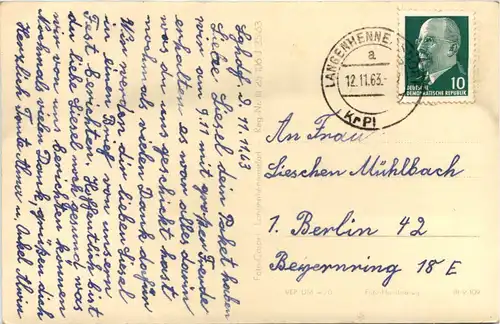 Lghdf. d. 11.11.63
Liebe Liesel dein Paket haben
wir am 9.11 mit großer Freude
erhalten es war alles drin
was du uns geschickt hast
nochmals vielen Dank dafür
Wir werden dir lieben Liesel
in einem Brief von unsern
Fest berichten, Hoffentlich bist
du liebe Liesel noch gesund was
wir von uns berichten können
Nochmals vielen Dank, grüßen dich
Herzlich Tante u. Onkel
LANGENHENNE
a
12.11.63
Kr. Pl
10
DEUTSCHE
DEMOKRATISCHE REPUBLIK
An Frau
Lieschen Mühlbach
1. Berlin 42
Beyernring 18 E